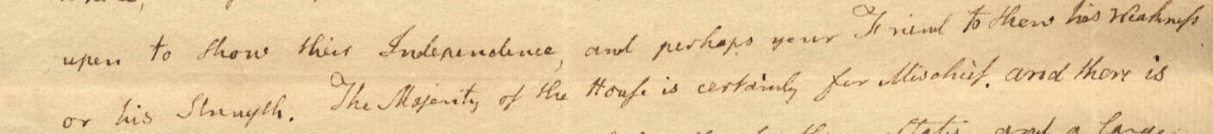 upon to show their Independence, and perhaps your Friend to shew his Weakness
or his Strength. The Majority of the House is certainly for Mischief, and there is
States and a large